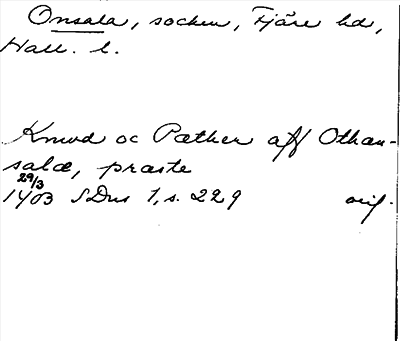 Onsala, socken, Fjäre hd,
Hall. l.
Knwd oc Pæther aff Othan-
salæ, præste
29/3
1403 SDns 1, s. 229 orig.